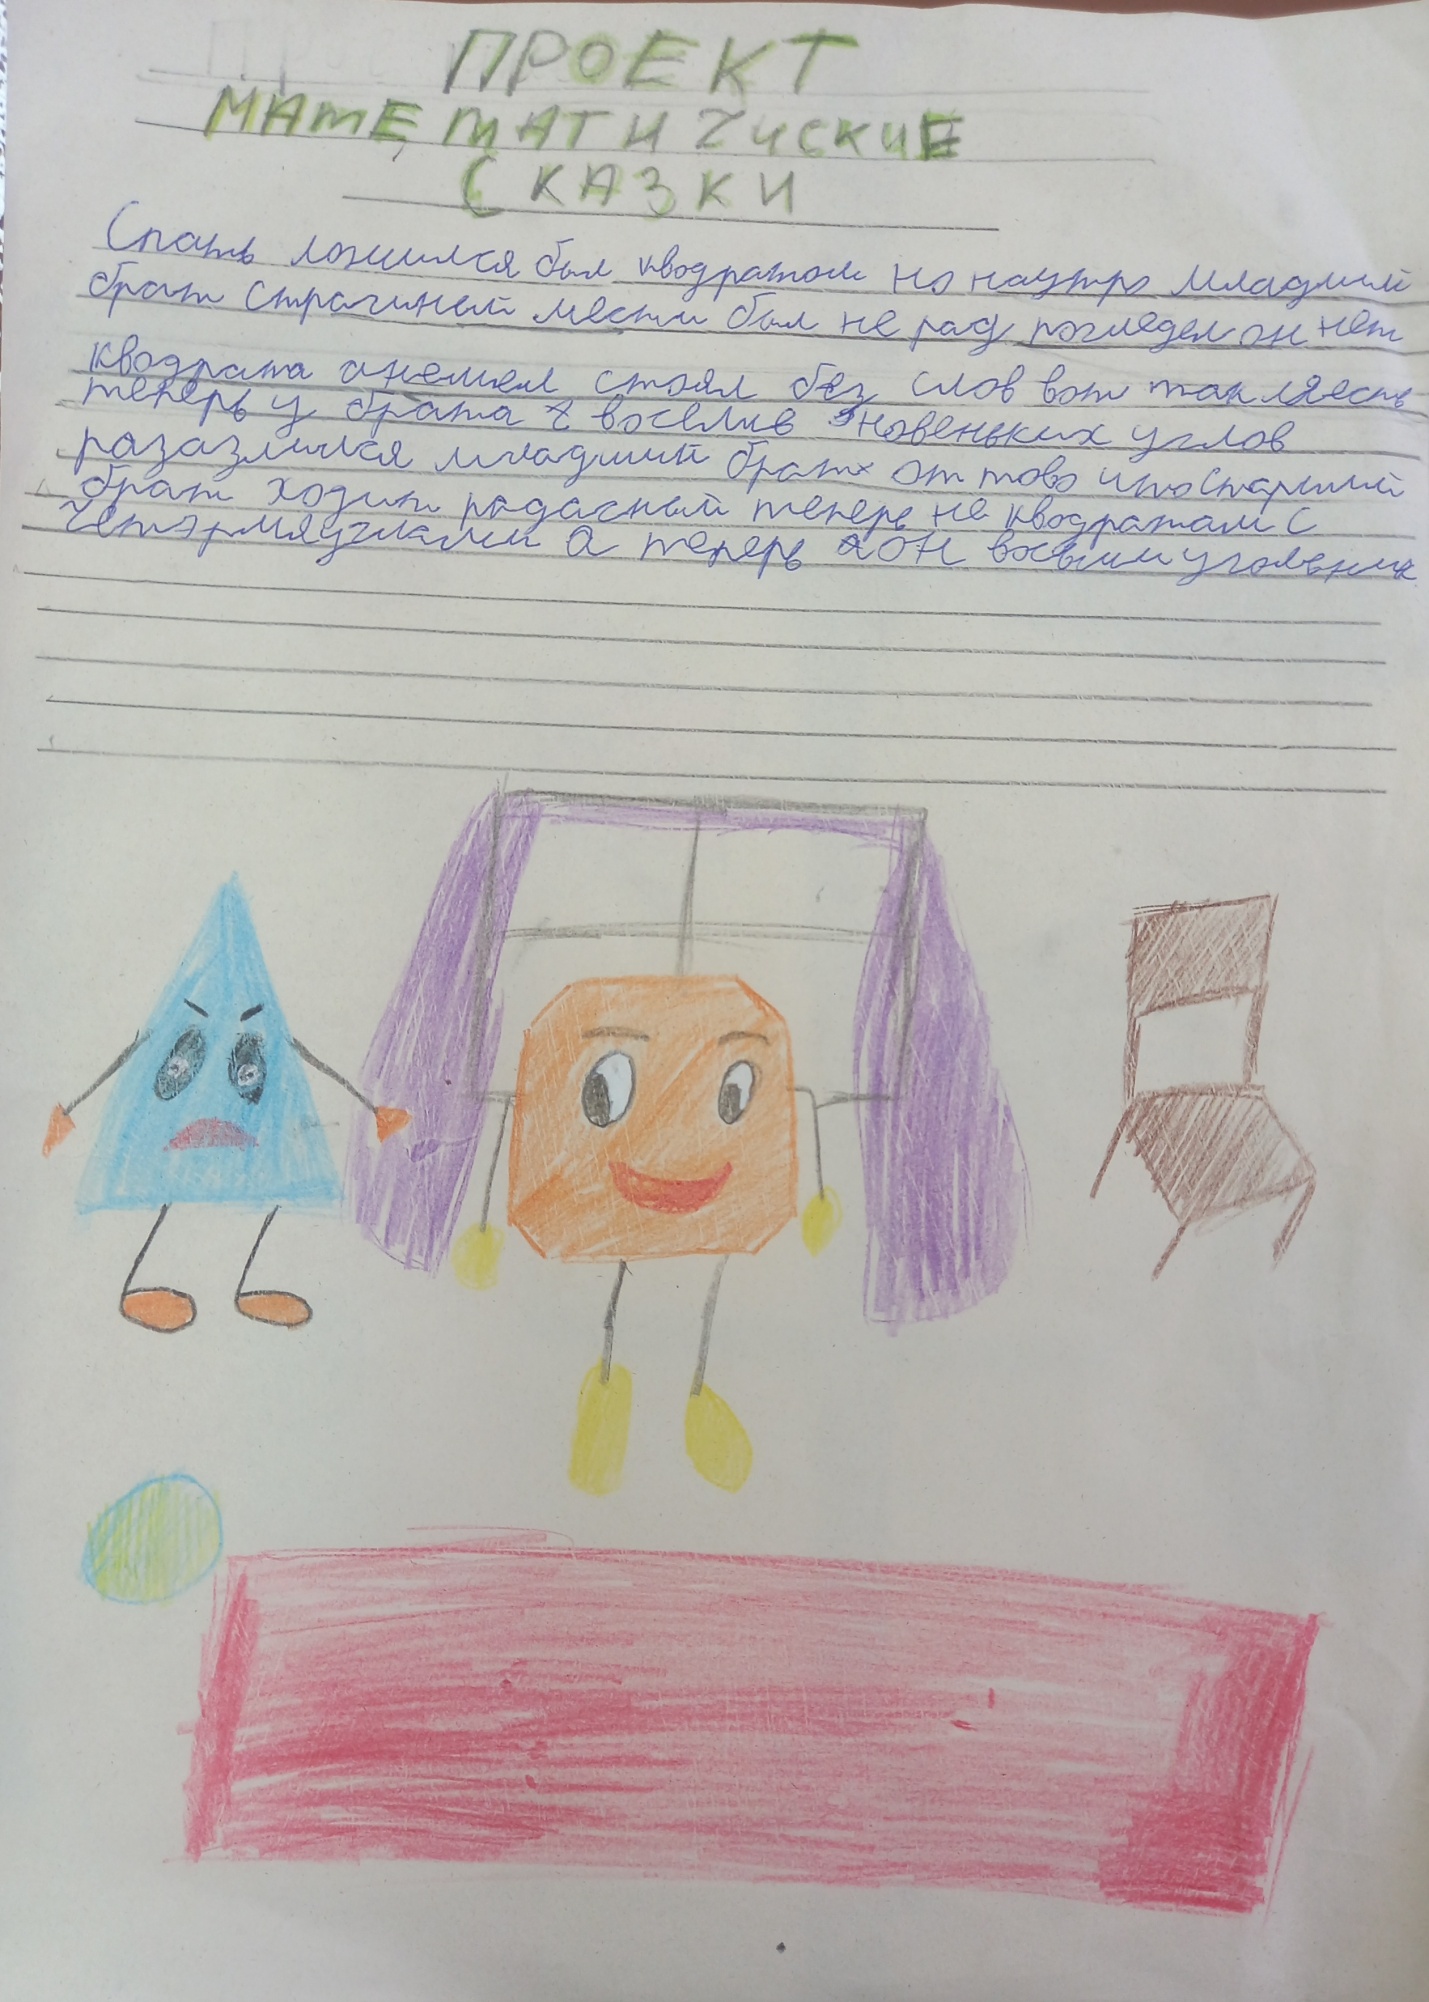 ПРОЕКТ
МАТЕМАТИЧИСКИЕ
СКАЗКИ
Спать ложился был кводратом но наутро младший
брат страгиной мести был не рад погледел он нет
кводрата онемел стоял без слов вот так месть
теперь у брата восемь новеньких углов
разазлился младший брат от тово что старший
брат ходит радасный теперь не кводратам с
четэрмяуглами а теперь он восьмиугольник